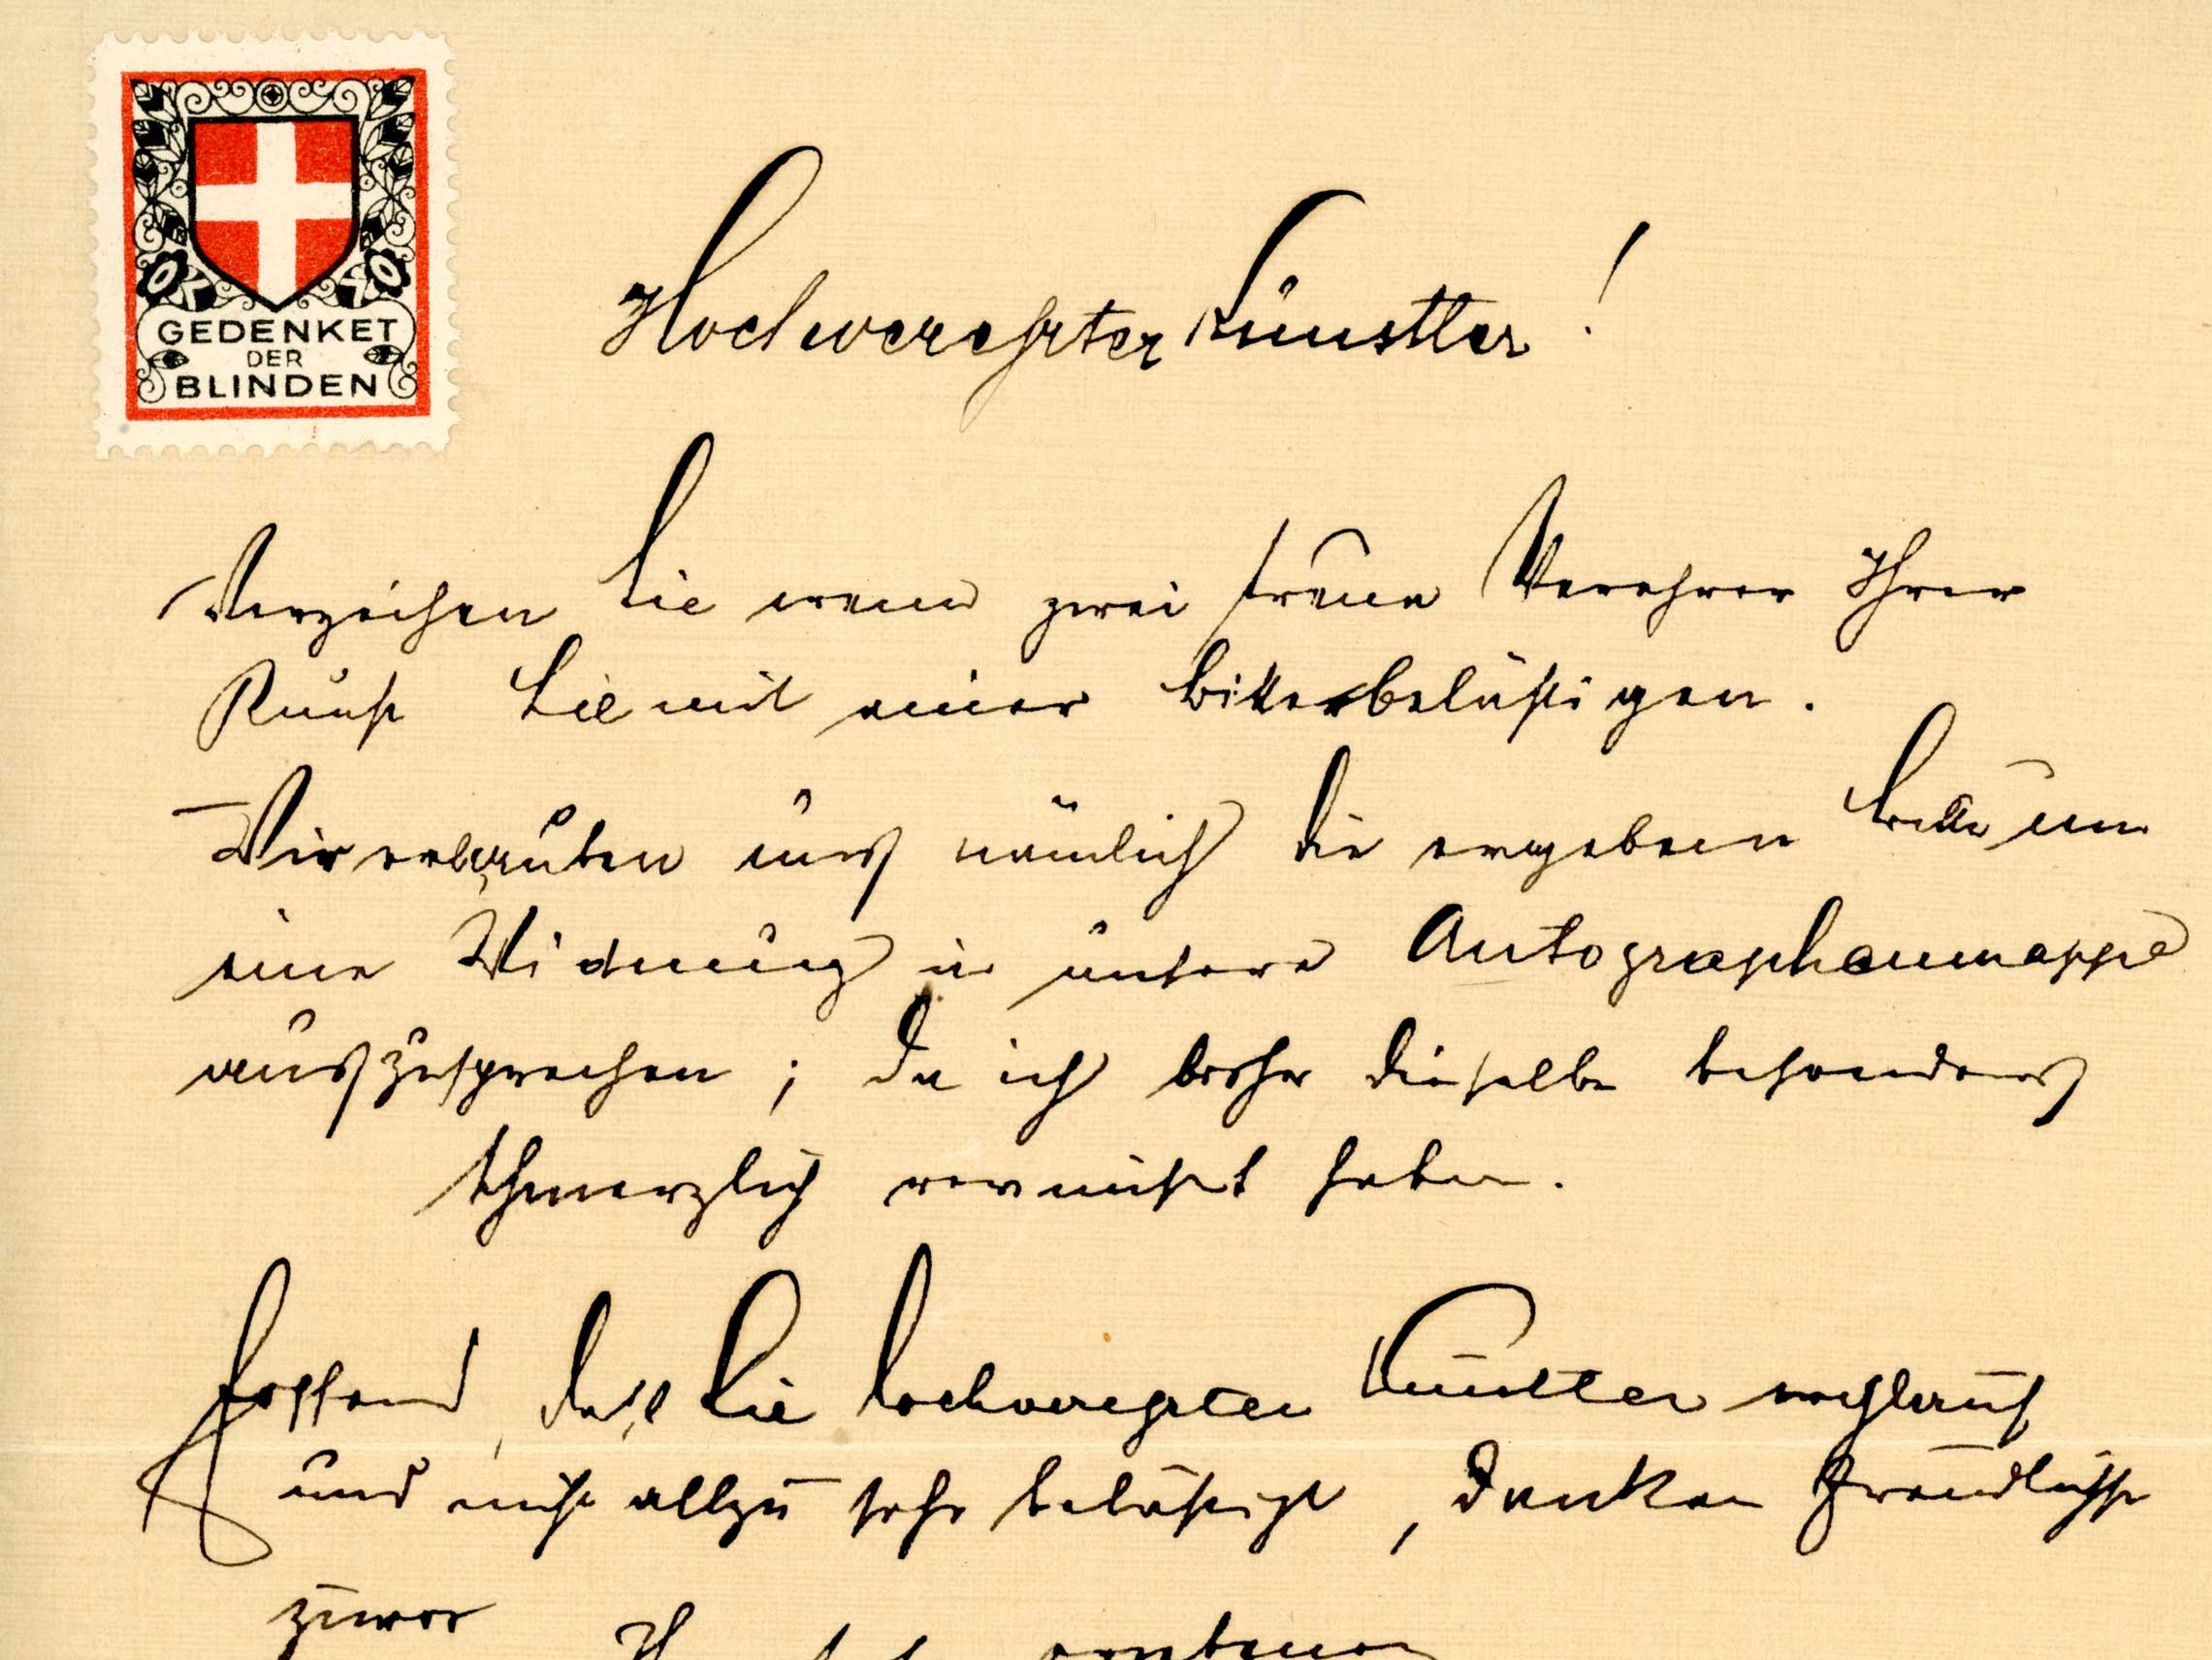 GEDENKET
DER
BLINDEN
Hochverehrter Künstler!
Verzeihen Sie wenn zwei treue Verehrer Ihrer
Kunst Sie mit einer Bitte belästigen.
Wir erlauben uns nämlich die ergeben Bitte um
eine Widmung in unsere Autographenmappe
auszusprechen; da ich bisher dieselbe besonders
schmerzlich vermißt haben.
Hoffend, daß Sie hochverehrter Künstler wohlauf
und nicht allzu sehr belästigt, danken freundlichst
zuvor